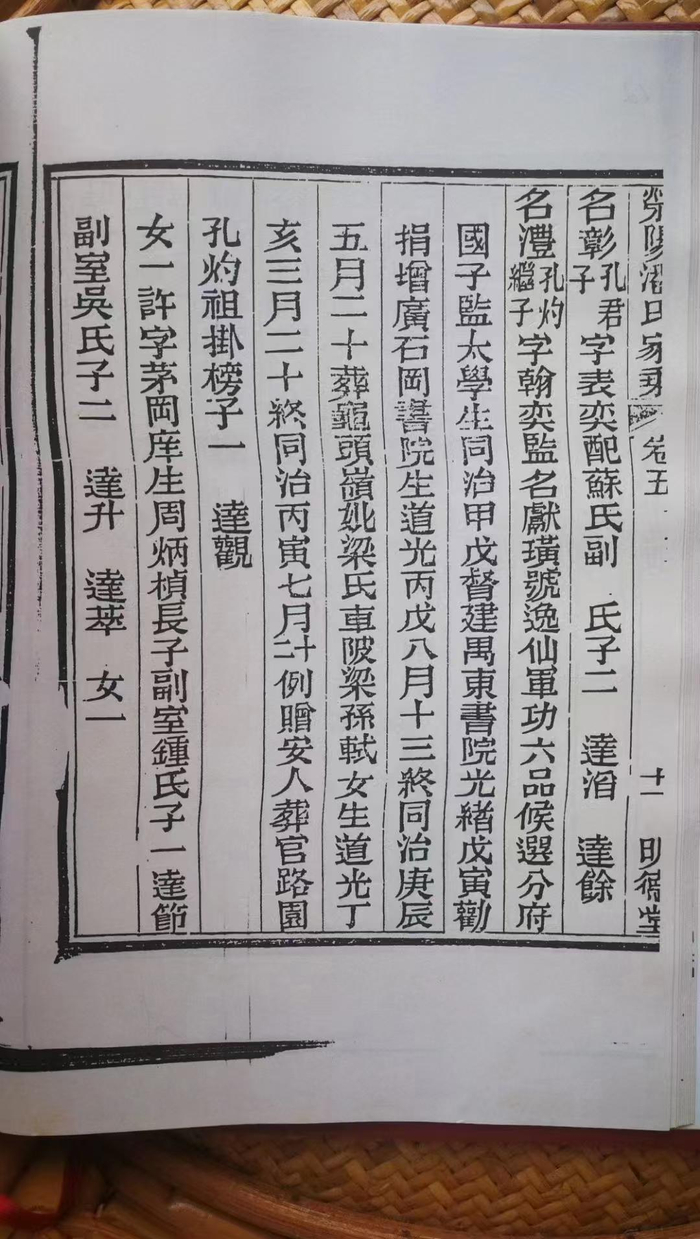 滎陽潘氏家乘 卷五 十一 明德堂
名彰孔君子字表奕配蘇氏副 氏子二 達湝 達餘
名澧孔灼繼子字翰奕監名獻璜號逸仙軍功六品候選分府
國子監太學生同治甲戊督建禺東書院光緒戊寅勸
捐增廣石岡書院生道光丙戊八月十三終同治庚辰
五月二十葬龜頭嶺妣梁氏車陂梁孫軾女生道光丁
亥三月二十終同治丙寅七月二十例贈安人葬官路園
孔灼祖掛榜子一 達觀
女一許字茅岡庠生周炳楨長子副室鍾氏子一達節
副室吳氏子二 達升 達萃 女一